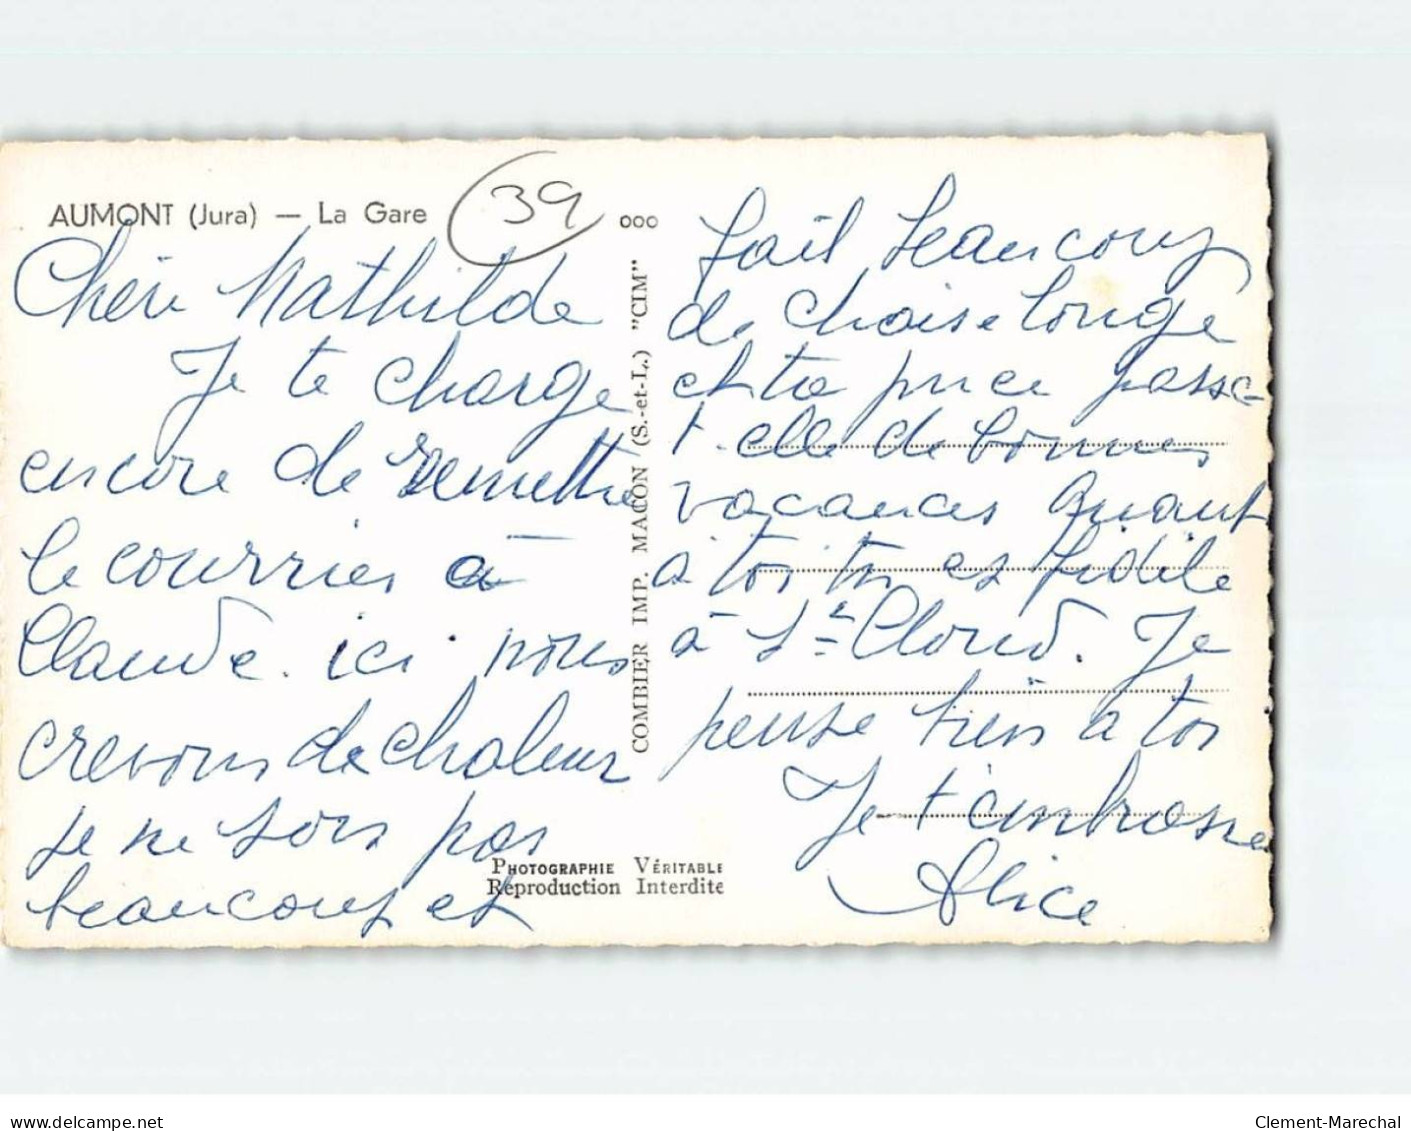 AUMONT (Jura) — La Gare
39
Chère Mathilde
Je te charge
encore de remettre
le courrier à
Claude. ici nous
crevons de chaleur
je ne sors pas
beaucoup et
ooo
COMBIER IMP. MACON (S.-et-L.) "CIM"
fait beaucoup
de chaise longue
et ta puce passe-
t-elle de bonnes
vacances Quant
à toi tu es fidèle
à St Cloud. Je
pense bien à toi
Je t'embrasse
Alice
PHOTOGRAPHIE VÉRITABLE
Reproduction Interdite
delcampe.net
Clement-Marechal